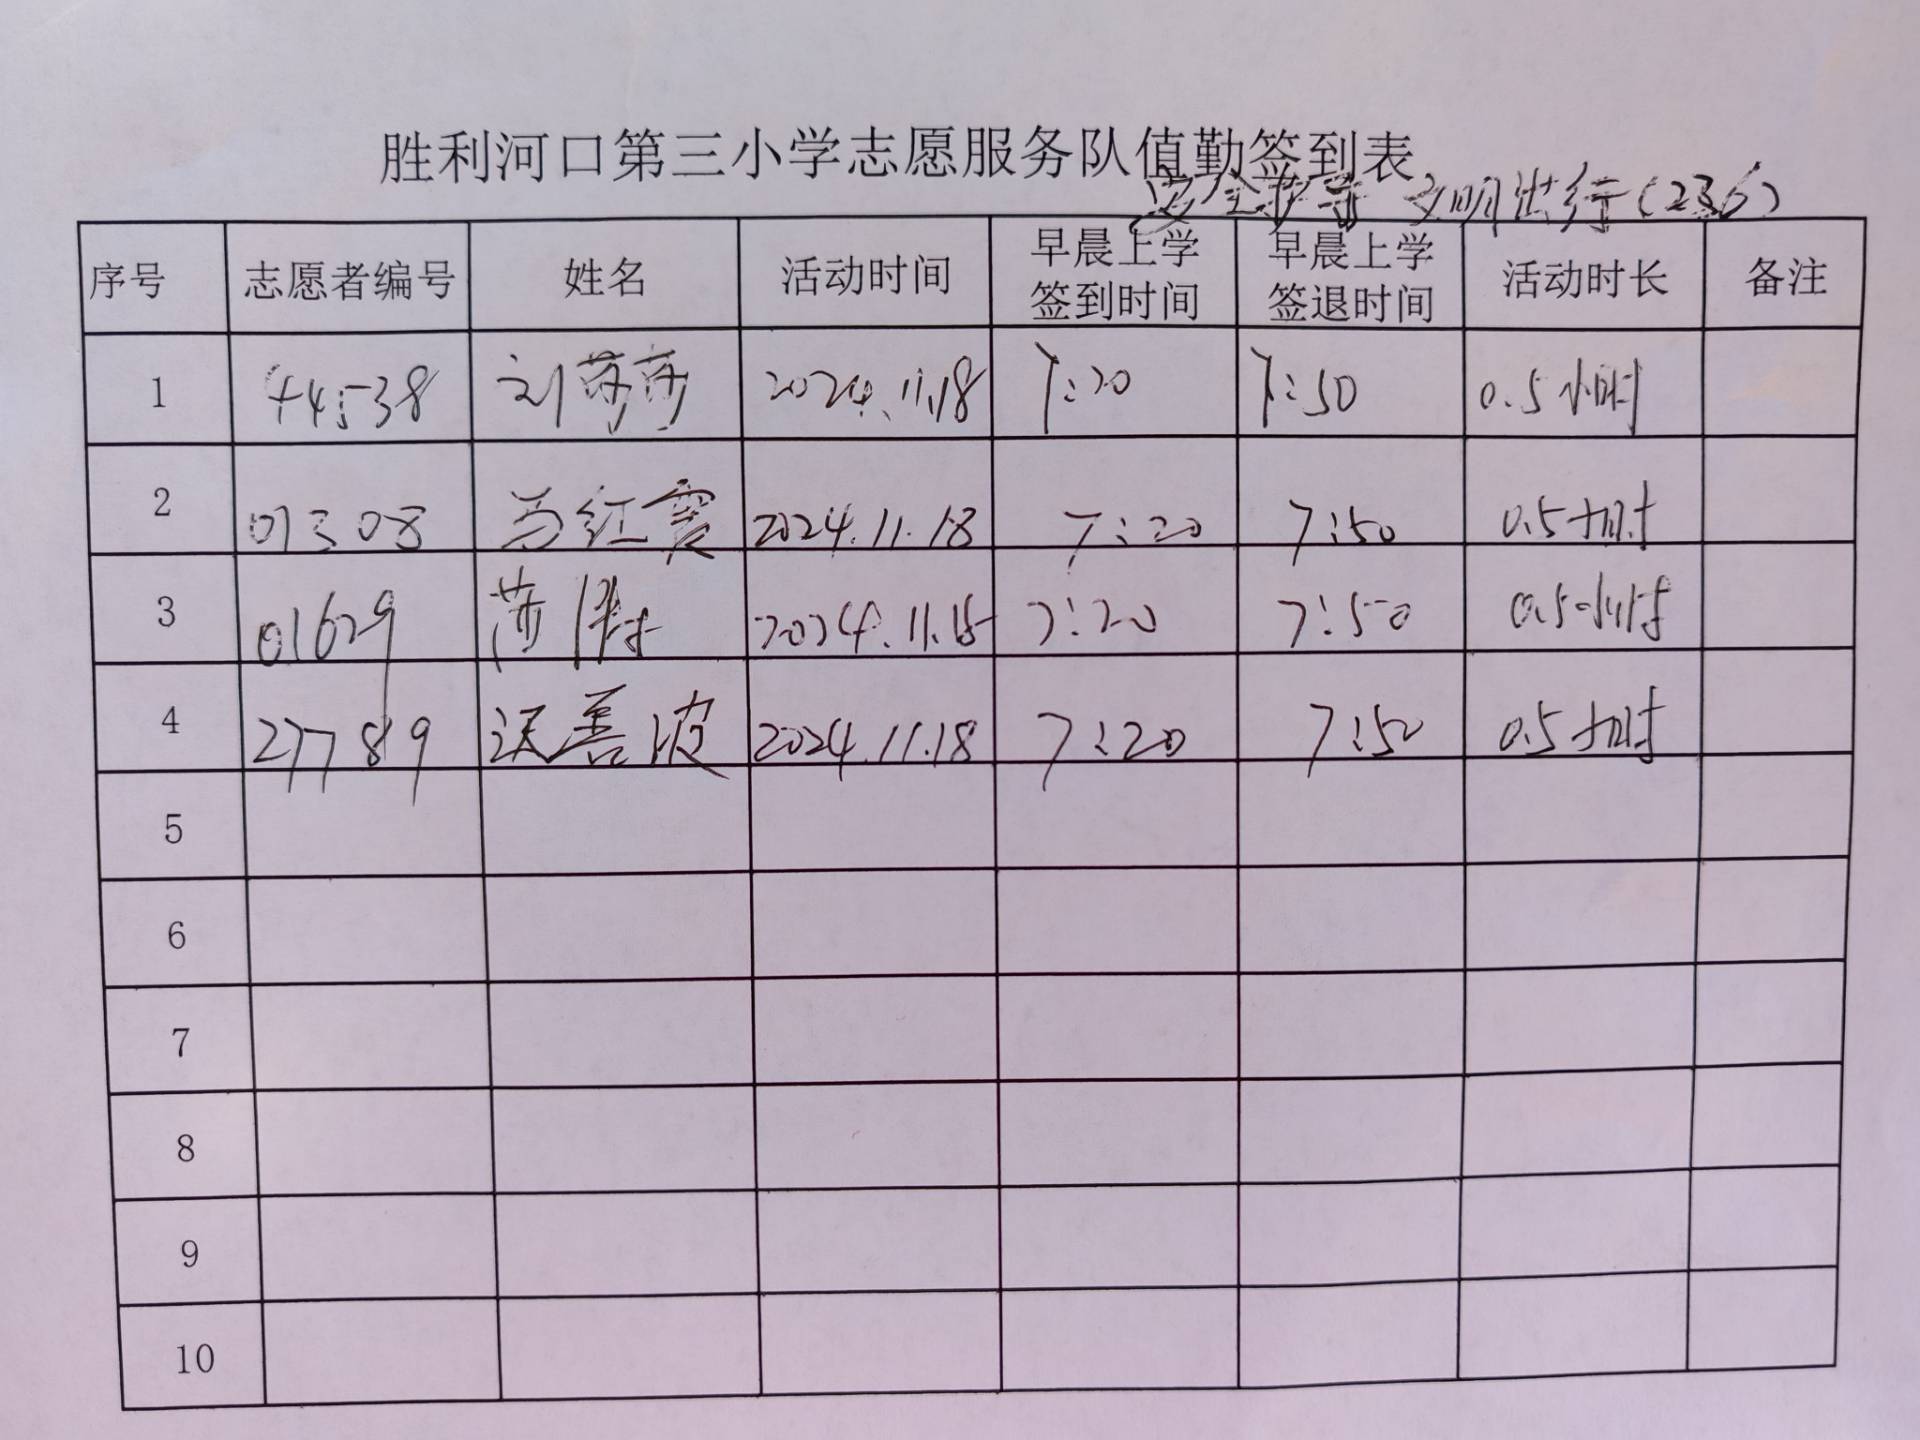 胜利河口第三小学志愿服务队值勤签到表
安全护导 文明出行(236)
序号 志愿者编号 姓名 活动时间 早晨上学签到时间 早晨上学签退时间 活动时长 备注
1 44538 刘莎莎 2024.11.18 7:20 7:50 0.5小时
2 01308 马红霞 2024.11.18 7:20 7:50 0.5小时
3 01629 2024.11.18 7:20 7:50 0.5小时
4 27789 善波 2024.11.18 7:20 7:50 0.5小时
5
6
7
8
9
10